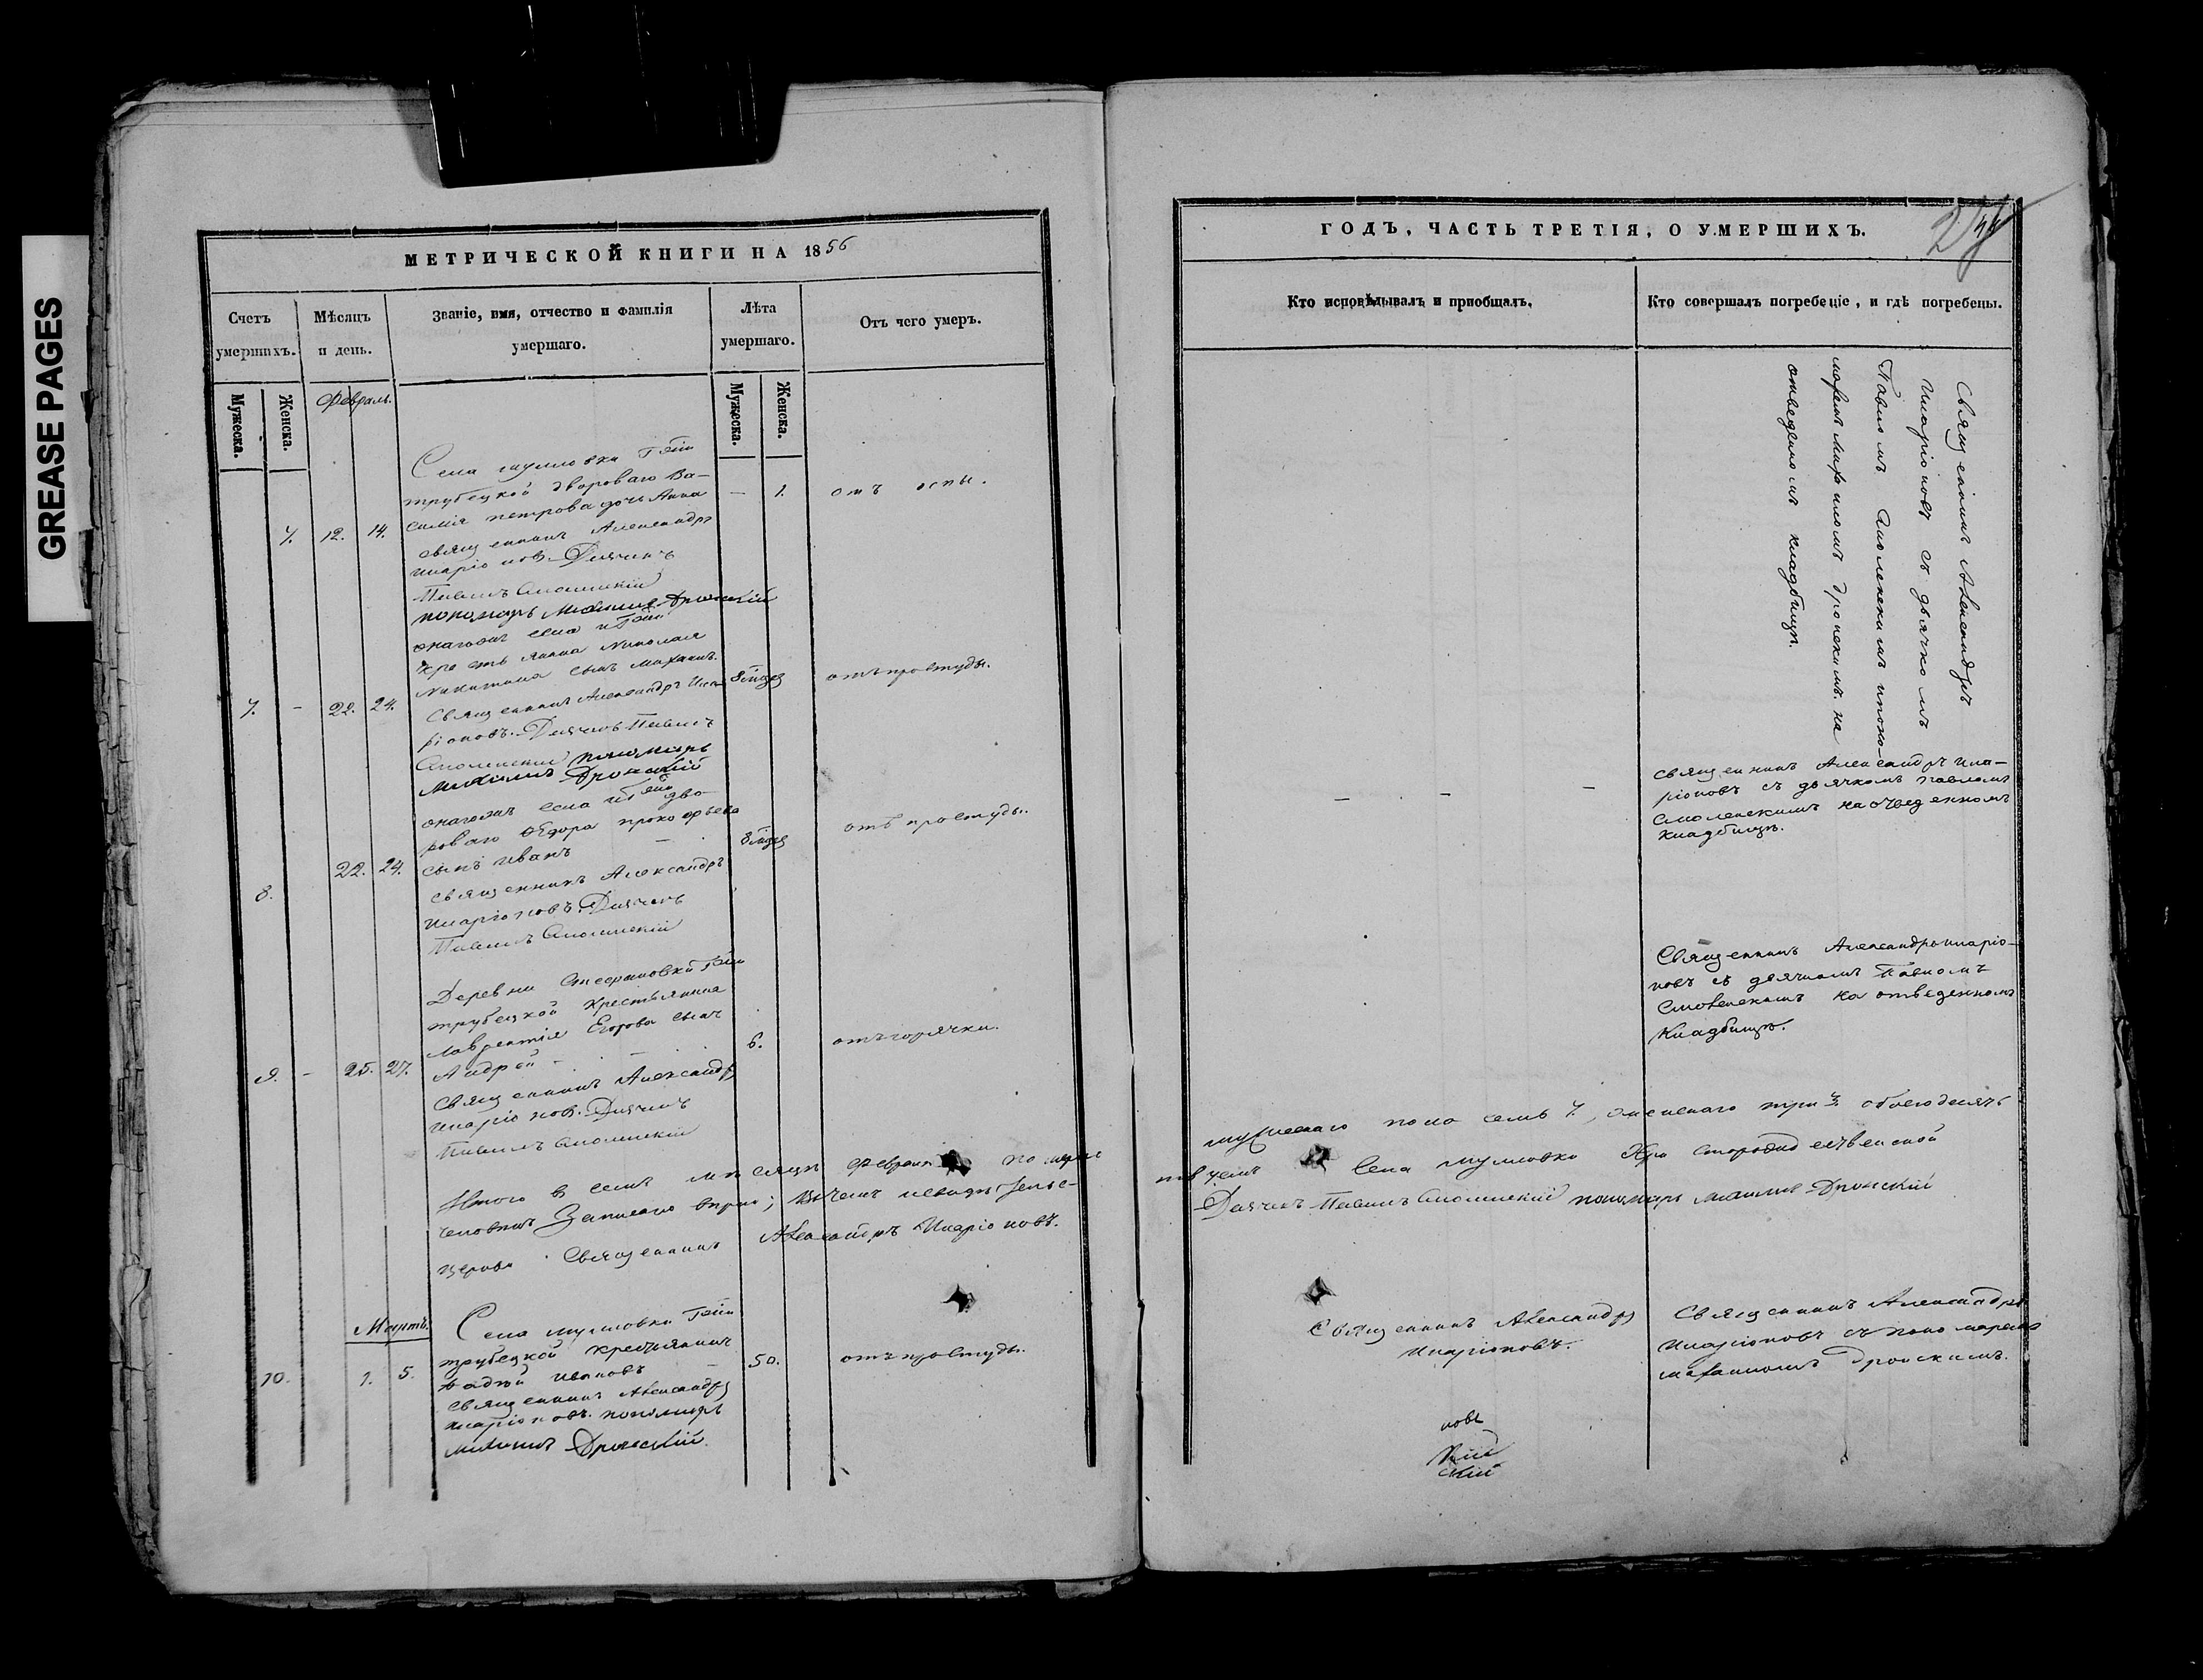 GREASE PAGES
МЕТРИЧЕСКОЙ КНИГИ НА 1856
Счетъ умершихъ.
Мѣсяцъ и день.
Званіе, имя, отчество и фамилія умершаго.
Лѣта умершаго.
Отъ чего умеръ.
Мужеска.
Женска.
Февраль.
Мужеска.
Женска.
7. 12. 14.
Села
трубецкой двороваго Ва-
силія петрова дочь Анна
— 1. отъ оспы.
священникъ Александръ
иларіоновъ. Дьячекъ
Павелъ Смоленскій
пономарь Михаилъ Дронскій
7. – 22. 24.
онагожъ села
Николая
Никитина сынъ Михаилъ.
отъ простуды.
Священникъ Александръ Ила-
ріоновъ. Дьячекъ Павелъ
Смоленскій пономарь
Михаилъ Дронскій
8. 22. 24.
онагожъ села дво-
роваго Ѳедора прокофьева
сынъ иванъ —
отъ простуды.
священникъ Александръ
иларіоновъ. Дьячекъ
Павелъ Смоленскій
9. – 25. 27.
Деревни Стефановки
трубецкой крестьянина
лаврентія Егорова сынъ
Андрей – 6. отъ горячки.
священникъ Александръ
иларіоновъ. Дьячекъ
Павелъ Смоленскій
Итого в семъ мѣсяцѣ февралѣ
человѣкъ Записано
церкви Священникъ Александръ Иларіоновъ.
Мартъ.
10. 1. 5.
Села
трубецкой крестьянинъ
ивановъ — 50. отъ простуды.
священникъ Александръ
иларіоновъ. пономарь
Михаилъ Дронскій.
ГОДЪ, ЧАСТЬ ТРЕТІЯ, О УМЕРШИХЪ.
Кто исповѣдывалъ и пріобщалъ.
Кто совершалъ погребеніе, и гдѣ погребены.
Священникъ Александръ
Иларіоновъ съ дьячкомъ
Павломъ Смоленскимъ и поно-
маремъ Михаиломъ дронскимъ. на
отведеномъ кладбищѣ.
— — —
священникъ Александръ ила-
ріоновъ съ дьячкомъ павломъ
смоленскимъ на отведенномъ
кладбищѣ.
Священникъ Александръ иларіо-
новъ съ дьячкомъ Павломъ
Смоленскимъ на отведенномъ
Кладбищѣ.
мужескаго пола семь 7, женскаго три 3. обоего десять
Села
Дьячекъ Павелъ Смоленскій пономарь Михаилъ Дронскій
Священникъ Александръ
Иларіоновъ.
Священникъ Александръ
Иларіоновъ съ пономаремъ
михаиломъ дронскимъ.
новъ
скій